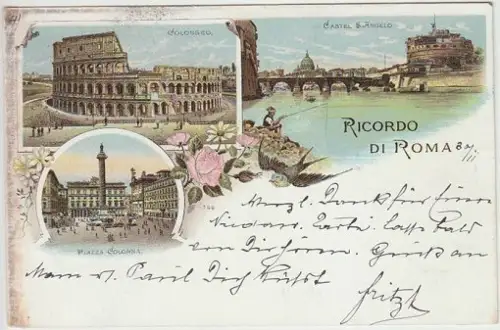 COLOSSEO.
CASTEL S. ANGELO
RICORDO
DI ROMA
PIAZZA COLONNA.
Herzl. Dank für
Karte. Lasse bald
von Dir hören. Gruß an
Mam u. Paul Dich küßt
Fritz